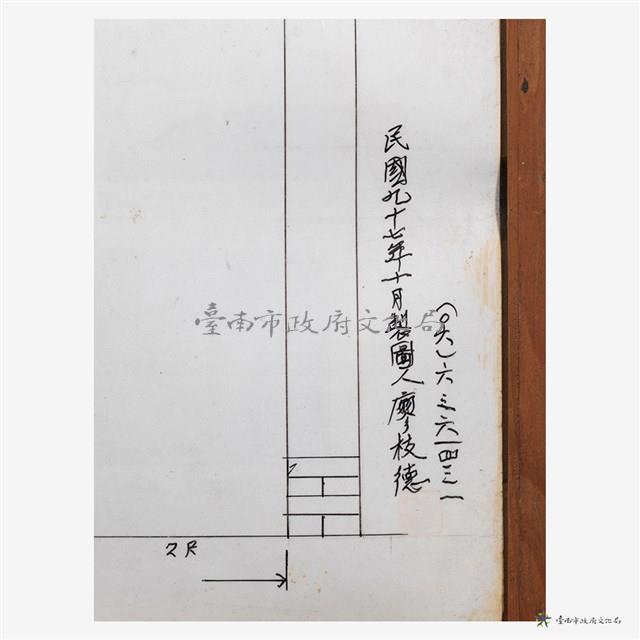 民國九十七年十月製圖人廖枝德
(〇六)六三六一四三一
臺南市政府文化局
2尺
臺南市政府文化局